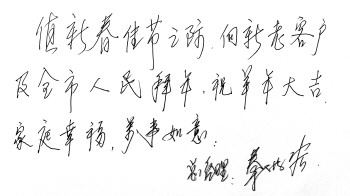 值新春佳节之际,向新老客户
及全市人民拜年,祝羊年大吉,
家庭幸福,万事如意。
总经理:秦